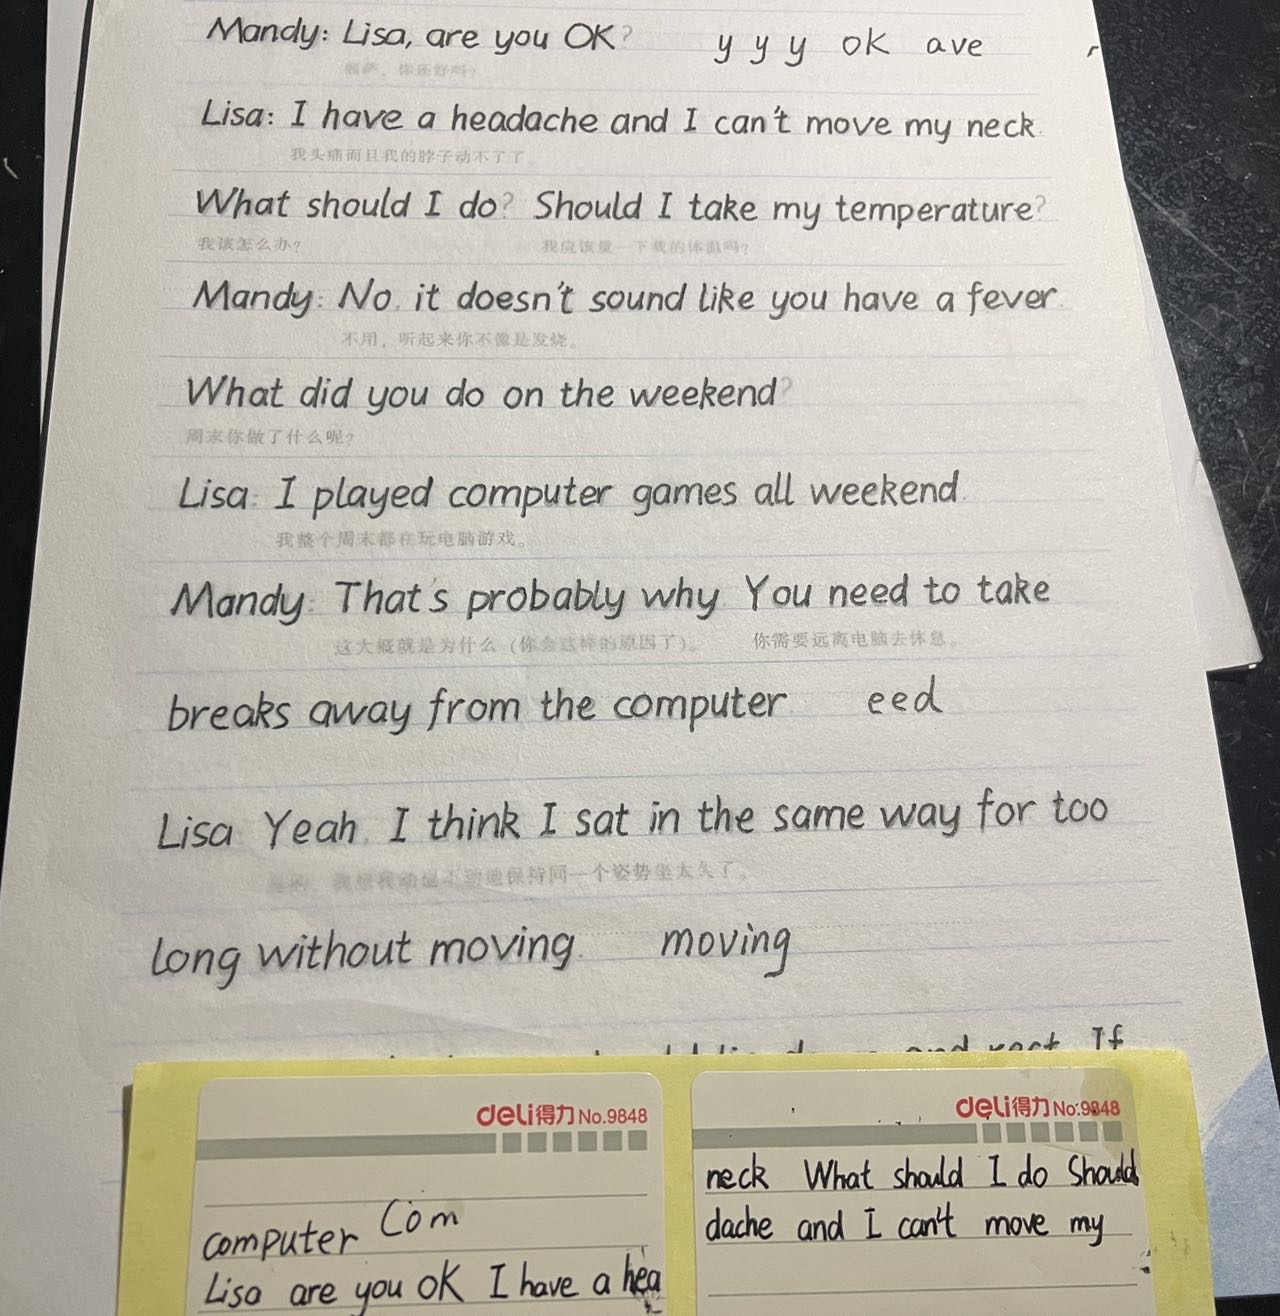 Mandy: Lisa, are you OK? y y y ok ave
你还好吗?
Lisa: I have a headache and I can't move my neck.
我头痛而且我的脖子动不了了。
What should I do? Should I take my temperature?
我该怎么办? 我应该量一下我的体温吗?
Mandy: No, it doesn't sound like you have a fever.
不用，听起来你不像是发烧。
What did you do on the weekend?
周末你做了什么呢?
Lisa: I played computer games all weekend.
我整个周末都在玩电脑游戏。
Mandy: That's probably why. You need to take
这大概就是为什么（你会这样的原因了）。 你需要远离电脑去休息。
breaks away from the computer eed
Lisa Yeah, I think I sat in the same way for too
保持同一个姿势坐太久了。
long without moving. moving
and rest. If
deli得力 No.9848
computer Com
Lisa are you OK I have a hea
deli得力 No:9848
neck What should I do Should
dache and I can't move my